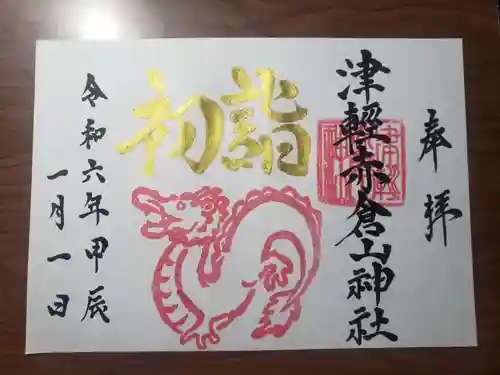 奉拝
津軽赤倉山神社
初詣
令和六年甲辰
一月一日